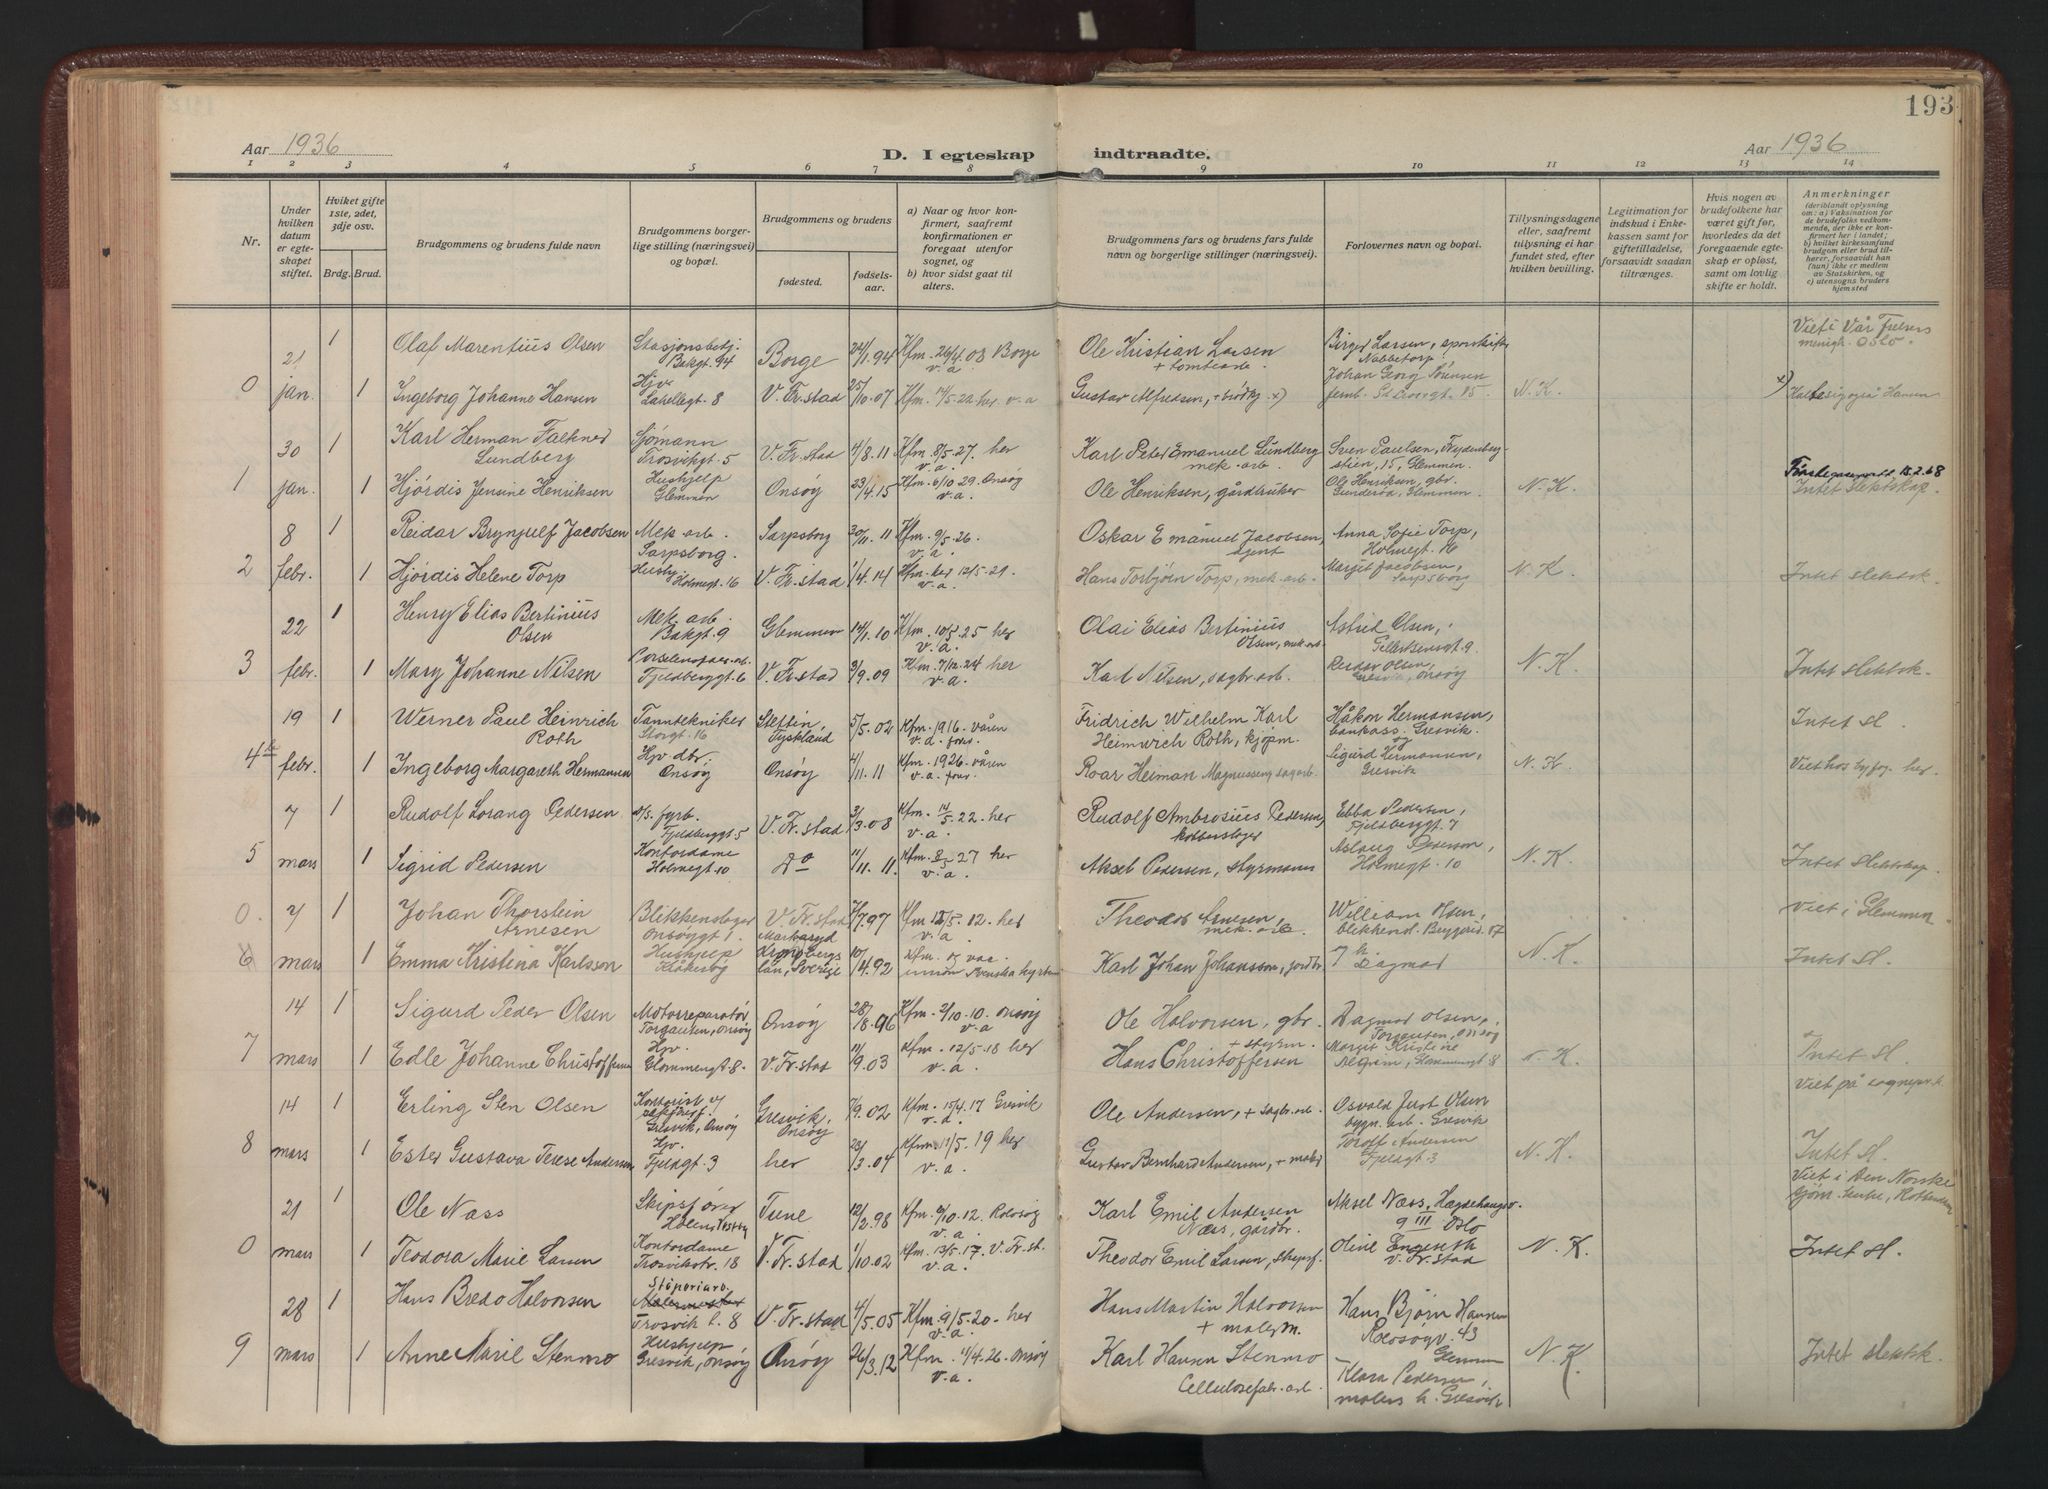 193
Aar 1936
D. I egteskap indtraadte.
Aar 1936
1 2 3 4 5 6 7 8 9 10 11 12 13 14
Nr.
Under hvilken datum er egteskapet stiftet.
Hviket gifte 1ste, 2det, 3dje osv.
Brdg. Brud.
Brudgommens og brudens fulde navn
Brudgommens borgerlige stilling (næringsvei) og bopæl.
Brudgommens og brudens
fødested.
fødselsaar.
a) Naar og hvor konfirmert, saafremt konfirmationen er foregaaet utenfor sognet, og
b) hvor sidst gaat til alters.
Brudgommens fars og brudens fars fulde navn og borgerlige stillinger (næringsvei).
Forlovernes navn og bopæl.
Tillysningsdagene eller, saafremt tilysning ei har fundet sted, efter hvilken bevilling.
Legitimation for indskud i Enkekassen samt for giftetilladelse, forsaavidt saadan tiltrænges.
Hvis nogen av brudefolkene har været gift før, hvorledes da det foregaaende egteskap er opløst, samt om lovlig skifte er holdt.
Anmerkninger
(deriblandt oplysning om: a) Vaksination for de brudefolks vedkommende, der ikke er konfirmert her i landet; b) hvilket kirkesamfund brudgom eller brud tilhører, forsaavidt han (hun) ikke er medlem av Statskirken, og c) utensogns bruders hjemsted
21 1 Olaf Marentius Olsen Stasjonsbetj. Bakgt. 44 Borge 24/1.94 Kfm. 26/4.08 Borge v.a. Ole Kristian Larsen + tomteade. Birger Larsen, Nabbetorp Viet i Vår Frelsers menigh. Oslo.
0 jan. 1 Ingeborg Johanne Hansen Hjv. Lahellegt. 8 V. Fr.stad 25/10.07 Kfm. 14/5.22 her v.a Gustav Alfredsen, + x) Johan Georg Sørensen N.K. x) Hansen
30 1 Karl Herman Falkner Lundberg Sjømann Trosvikgt. 5 V. Fr.stad 4/8.11 Kfm. 8/5.27. her v.a. Karl Peter Emanuel Lundberg mek. arb. Sven Paulsen, Frydenbergstien, 15, Glemmen.
1 jan. 1 Hjördis Jensine Henriksen Hushjelp Glemmen Onsöy 23/4.15 Kfm. 6/10 29. Onsöy v.a. Ole Henriksen, gårdbruker Ole Henriksen, gbr. Glemmen. N.K. 15.2.68 Intet slektskap.
8 1 Reidar Brynjulf Jacobsen Mek. arb. Sarpsborg. Sarpsborg 20/11.11 Kfm. 9/5.26. v.a. Oskar Emanuel Jacobsen, agent Anna Sofie Torp, Holmegt. 16
2 febr. 1 Hjördis Helene Torp Hushj. Holmegt. 16 V. Fr.stad 1/4.14 Kfm. her 12/5-29. v.a. Hans Torbjörn Torp, mek. arb. Margit Jacobsen, Sarpsborg N.K. Intet slektsk.
22 1 Henry Elias Bertinius Olsen Mek. arb. Bakgt. 9 Glemmen 14/1.10 Kfm. 10/5 25 her v.a. Olai Elias Bertinius Olsen, mek. arb. Astrid Olsen, Gellertsensgt 9.
3 febr. 1 Mary Johanne Nilsen Porselensfabr.arb. Fjeldberggt. 6 V. Fr.stad 3/9.09 Kfm. 7/12.24 her v.a. Karl Nilsen, sagbr. arb. Reidar Olsen, Gresvik, Onsöy N.K. Intet slektsk.
19 1 Werner Paul Heinrich Roth Tanntekniker Storgt. 16 Stettin, Tyskland 5/5.02 Kfm. 1916. våren Fridrich Wilhelm Karl Heinrich Roth, kjöpm. Håkon Hermansen, bankass. Gresvik. og Intet sl.
4 febr. 1 Ingeborg Margareth Hermansen Hjv. dtr. Onsöy Onsöy 4/11.11 Kfm. 1926. våren v.a. Roar Heiman Magnussen sagarb. Sigurd Hermansen, Gresvik N.K. Viet hos byfog. her.
7 1 Rudolf Lorang Pedersen d/s. fyrb. Fjeldberggt. 5 V. Fr.stad 3/3.08 Kfm. 14/5. 22. her v.a. Rudolf Ambrosius Pedersen, kobberslager Ebba Pedersen, Fjeldberggt. 7
5 mars 1 Sigrid Pedersen Kontordame Holmegt. 10 Do 11/11.11. Kfm. 8/5 27 her v.a. Aksel Pedersen, styrmann Aslaug Pedersen, Holmegt. 10 N.K. Intet slektskap.
0. 7 1 Johan Thorstein Arnesen Blikkenslager Onsöygt 1. V. Fr.stad /7.97 Kfm. 12/5.12. her v.a. Theodor Arnesen, mek. arb. William Olsen, blikkensl. Viet i Glemmen
6 mars 1 Emma Kristina Karlsson Hushjelp Kråkeröy Markaryd Kronobergs län, Sverige 10/4.92 Kfm. og v.a. innen Svenska kyrkan Karl Johan Johansson, jordbr. Dagmar N.K. Intet sl.
14 1 Sigurd Peder Olsen Motorreparatör Torgauten, Onsöy Onsöy 28/8.96 Kfm. 2/10.10. Onsöy v.a Ole Halvorsen, gbr. Dagmar Olsen, Torgauten, Onsöy
7 mars 1 Edle Johanne Christoffersen Hjv. Glommengt. 8. V. Fr.stad 11/9.03 Kfm. 12/5.18 her v.a. + styrm. Hans Christoffersen Margit Kristine Glommengt 8 N.K. Intet sl. Viet på sognepr.k.
14 1 Erling Sten Olsen Kontorist Gresvik, Onsöy Gresvik, Onsöy 7/9.02 Kfm. 15/4.17 Gresvik v.a. Ole Andersen, + sagbr. arb. Osvald Just Olsen bygn. arb. Gresvik
8 mars 1 Ester Gustava Terese Andersen Hjv. Fjeldgt. 3 her 28/3.04 Kfm. 11/5.19 her v.a. Gustav Bernhard Andersen, + maler Toralf Andersen Fjeldgt. 3 N.K. Intet sl.
21 1 Ole Næss Skipsförer Holenstretby Tune 12/2.98 Kfm. 6/10.12. Rolvsöy v.a. Karl Emil Andersen Næss, gårdbr. Aksel Næss, Hegdehaugsv. 9 III Oslo Viet i Den Norske Sjöm. kirke, Rotterdam
0 mars 1 Teodora Marie Larsen Kontordame Trosvikstr. 18 V. Fr.stad 1/10.02 Kfm. 13/5.17. V. Fr.st. v.a. Theodor Emil Larsen, skipsf. Oline Engeseth V. Fr.stad N.K. Intet sl.
28 1 Hans Bredo Halvorsen Stöperiarb. Malermester Trosvik l. 8 V. Fr.stad 4/5.05 Kfm. 9/5.20. her v.a. Hans Martin Halvorsen + malerm. Hans Bjørn Hansen Rolvsögv. 43 Glemmen
9 mars 1 Anne Marie Stenmo Hushjelp Gresvik, Onsöy Onsöy 26/3.12 Kfm. 11/4.26. Onsöy v.a. Karl Hansen Stenmo Cellulosefabr. arb. Klara Pedersen, malers h. Gresvik N.K. Intet slektsk.